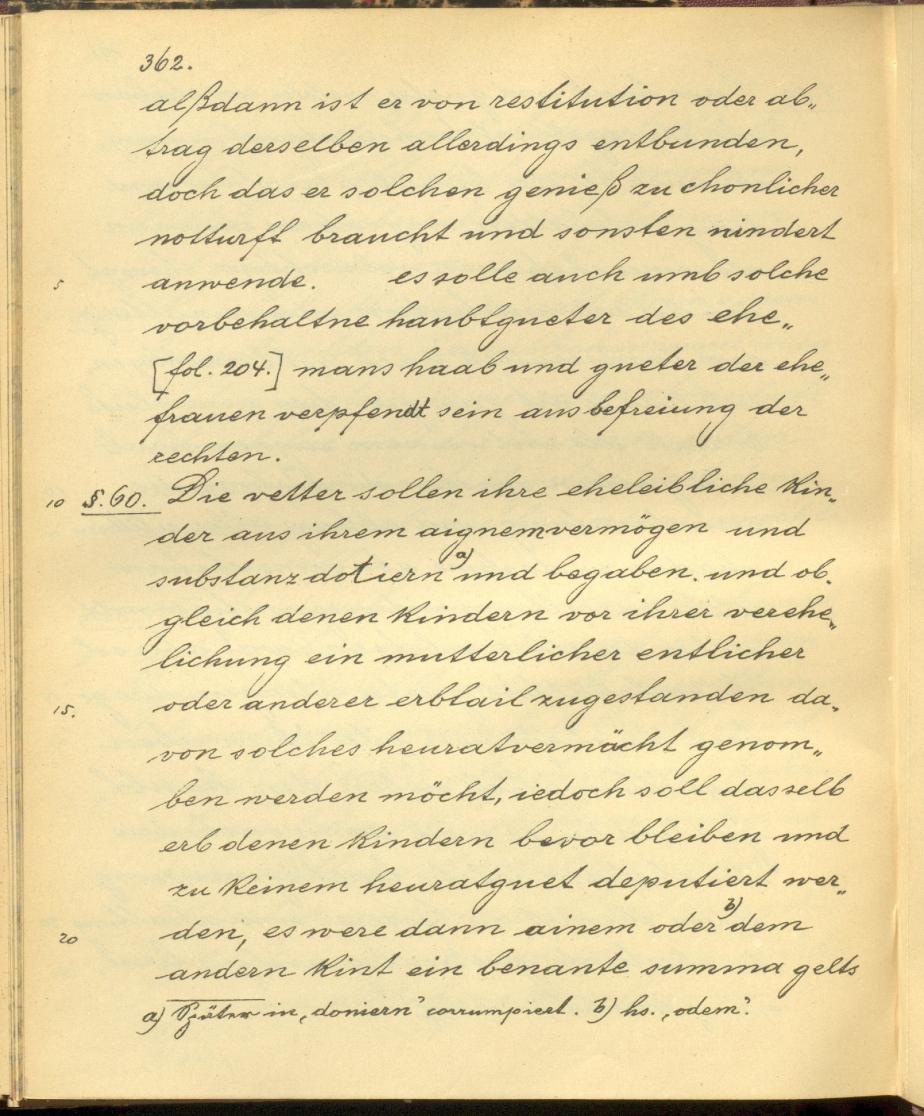 362.
alßdann ist er von restitution oder ab„
trag derselben allerdings entbunden,
doch das er solchen genieß zu chonlicher
notturft braucht und sonsten nindert
5 anwende. es solle auch umb solche
vorbehaltne haubtgueter des ehe„
[fol. 204.] mans haab und gueter der ehe„
frauen verpfendt sein aus befreiung der
rechten.
10 §. 60. Die vetter sollen ihre eheleibliche Kin„
der aus ihrem aignem vermögen und
substanz dotiern a) und begaben. und ob„
gleich denen Kindern vor ihrer verehe„
lichung ein mutterlicher entlicher
15. oder anderer erbtail zugestanden da„
von solches heuratvermächt genom„
ben werden möcht, iedoch soll dasselb
erb denen Kindern bevor bleiben und
zu Keinem heuratguet deputiert wer„
20 den, es were dann ainem oder b) dem
andern Kint ein benante summa gelts
a) Später in „doniern" corrumpiert. b) hs. „odem".